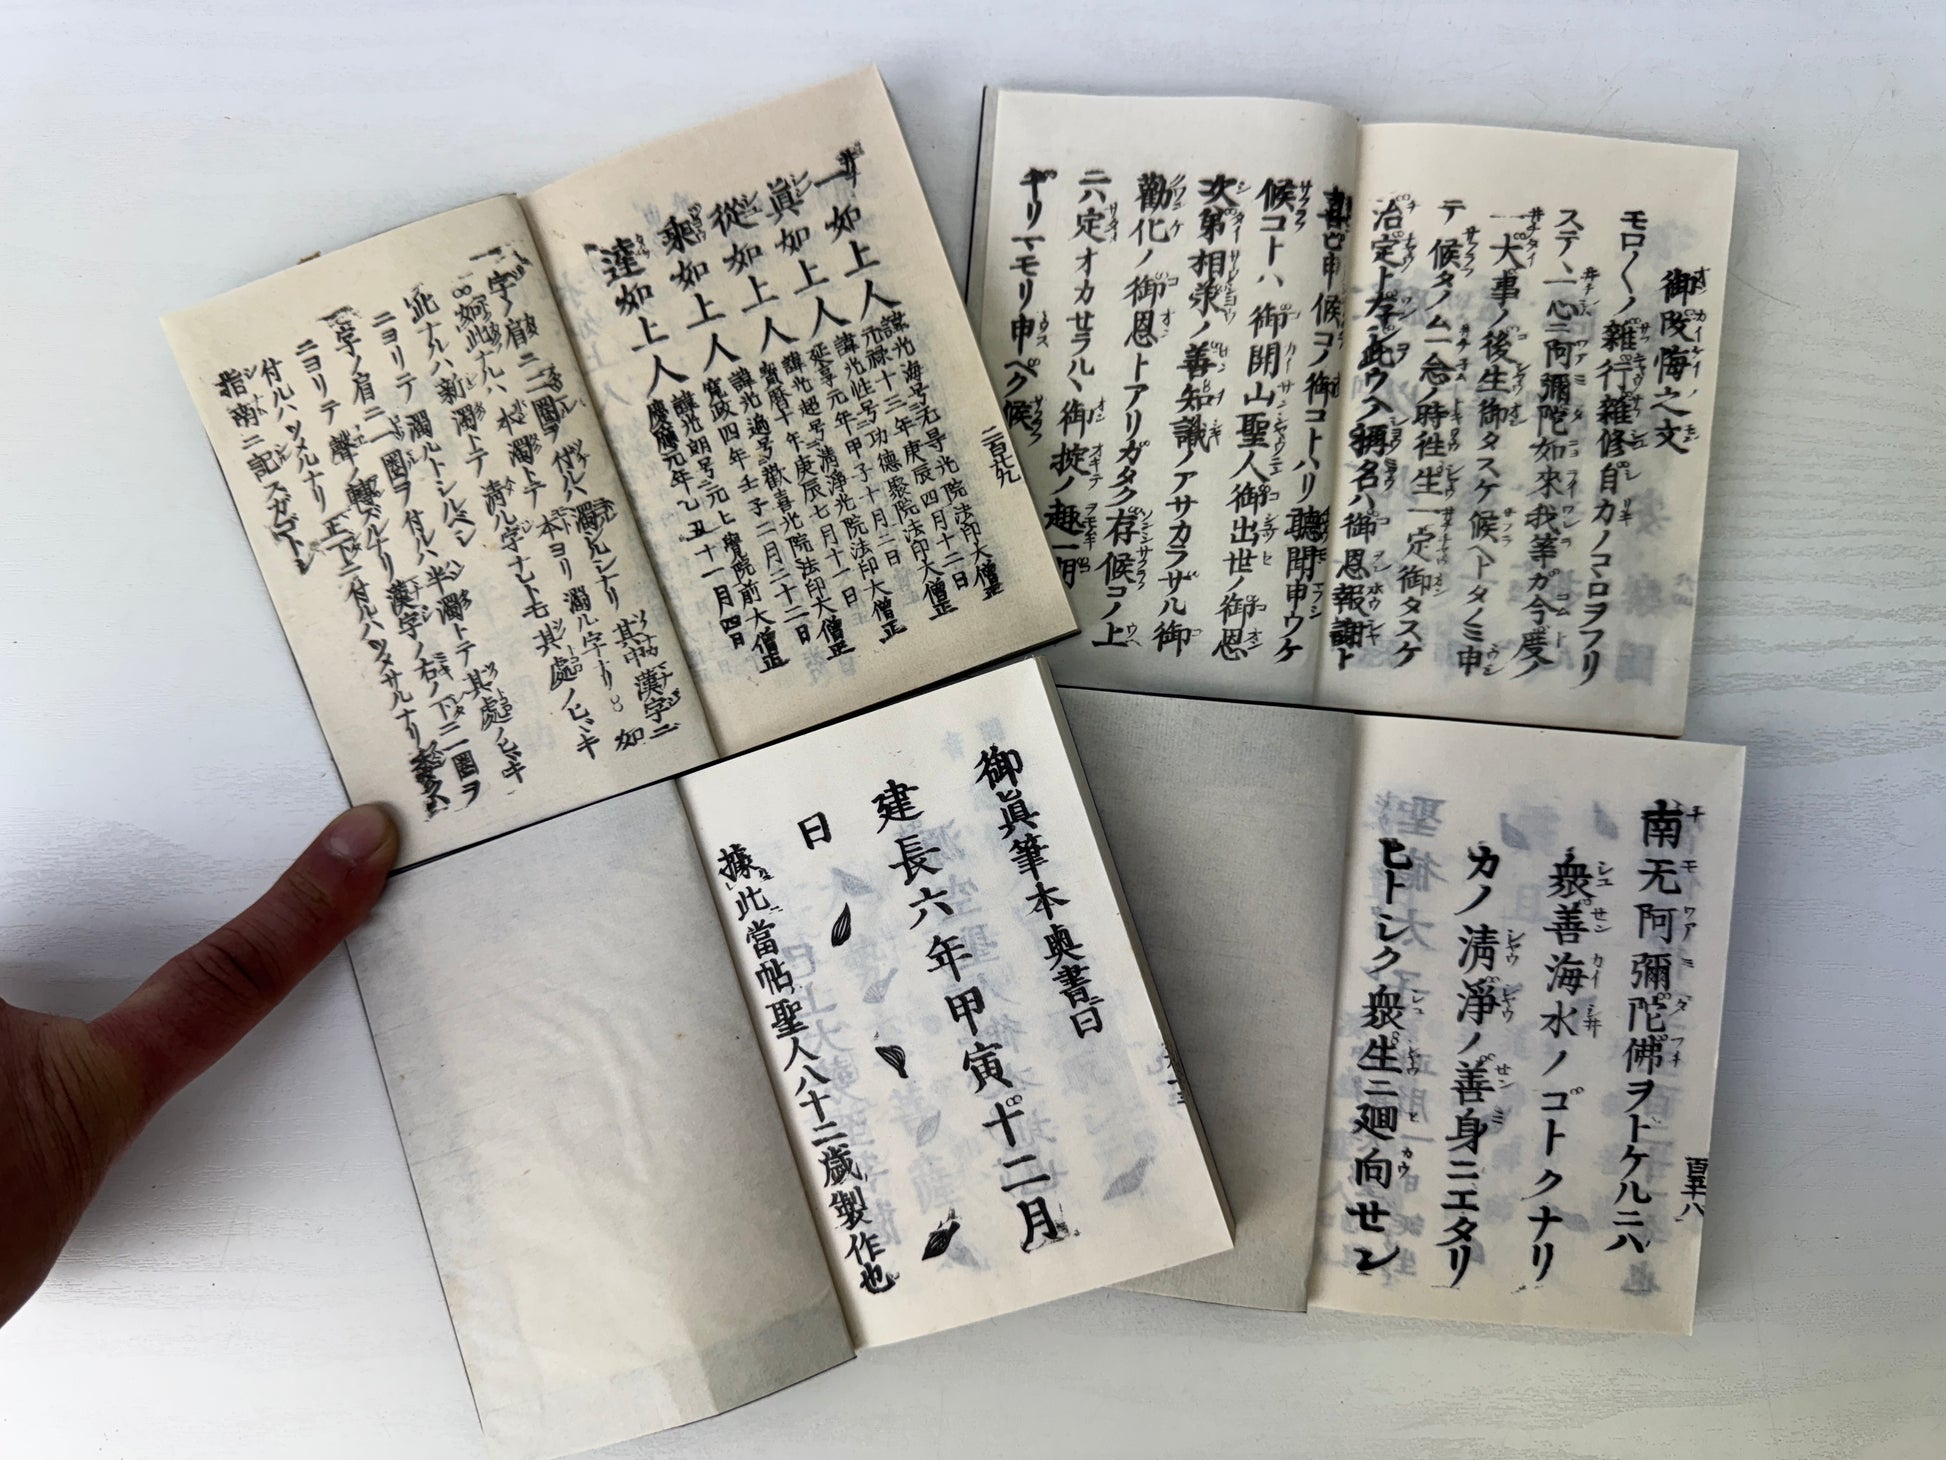 御改悔之文
モロ〱ノ雜行雜修自力ノコヽロヲフリ
ステヽ一心ニ阿彌陀如來我等ガ今度ノ
一大事ノ後生御タスケ候ヘトタノミ申
テ候タノム一念ノ時徃生一定御タスケ
治定ト存シ此ウヘノ稱名ハ御恩報謝ト
喜ヒ申候コノ御コトハリ聽聞申ワケ
候コトハ御開山聖人御出世ノ御恩
次第相承ノ善知識ノアサカラザル御
勸化ノ御恩トアリガタク存候コノ上
ニハ定オカセラルヽ御掟ノ趣一期
ギリマモリ申ベク候
一如上人
諱光海号无导光院法印大僧正
元禄十三年庚辰四月十二日
眞如上人
諱光性号功德聚院法印大僧正
延享元年甲子十月二日
從如上人
諱光超号淸淨光院法印大僧正
寶曆十年庚辰七月十一日
乘如上人
諱光遍号歡喜光院法印大僧正
寬政四年壬子二月二十二日
達如上人
諱光朗号元上覺院前大僧正
慶應元年乙丑十一月四日
二百廿九
一字ノ肩ニ二圈ヲ付ルハ濁ルシルシナリ其中漢字ニ
如此ナルハ本濁トテ本ヨリ濁ル字ナリ
如此ナルハ新濁トテ淸ル字ナレトモ其處ノヒヾキ
ニヨリテ濁ルトシルベシ
一字ノ肩ニ一圈ヲ付ルハ半濁トテ其處ノヒヾキ
ニヨリテ聲ノ轉ズルナリ漢字ノ右ノ下ニ一圈ヲ
付ルハツメルナリ正下ニ付ルハツメサルナリ
指南ニ記スガゴトシ
南无阿彌陀佛ヲトケルニハ
衆善海水ノゴトクナリ
カノ淸淨ノ善身ニエタリ
ヒトシク衆生ニ廻向せン
百五十八
御眞筆本奥書ニ曰
建長六年甲寅十二月
日
據此當帖聖人八十二歲製作也